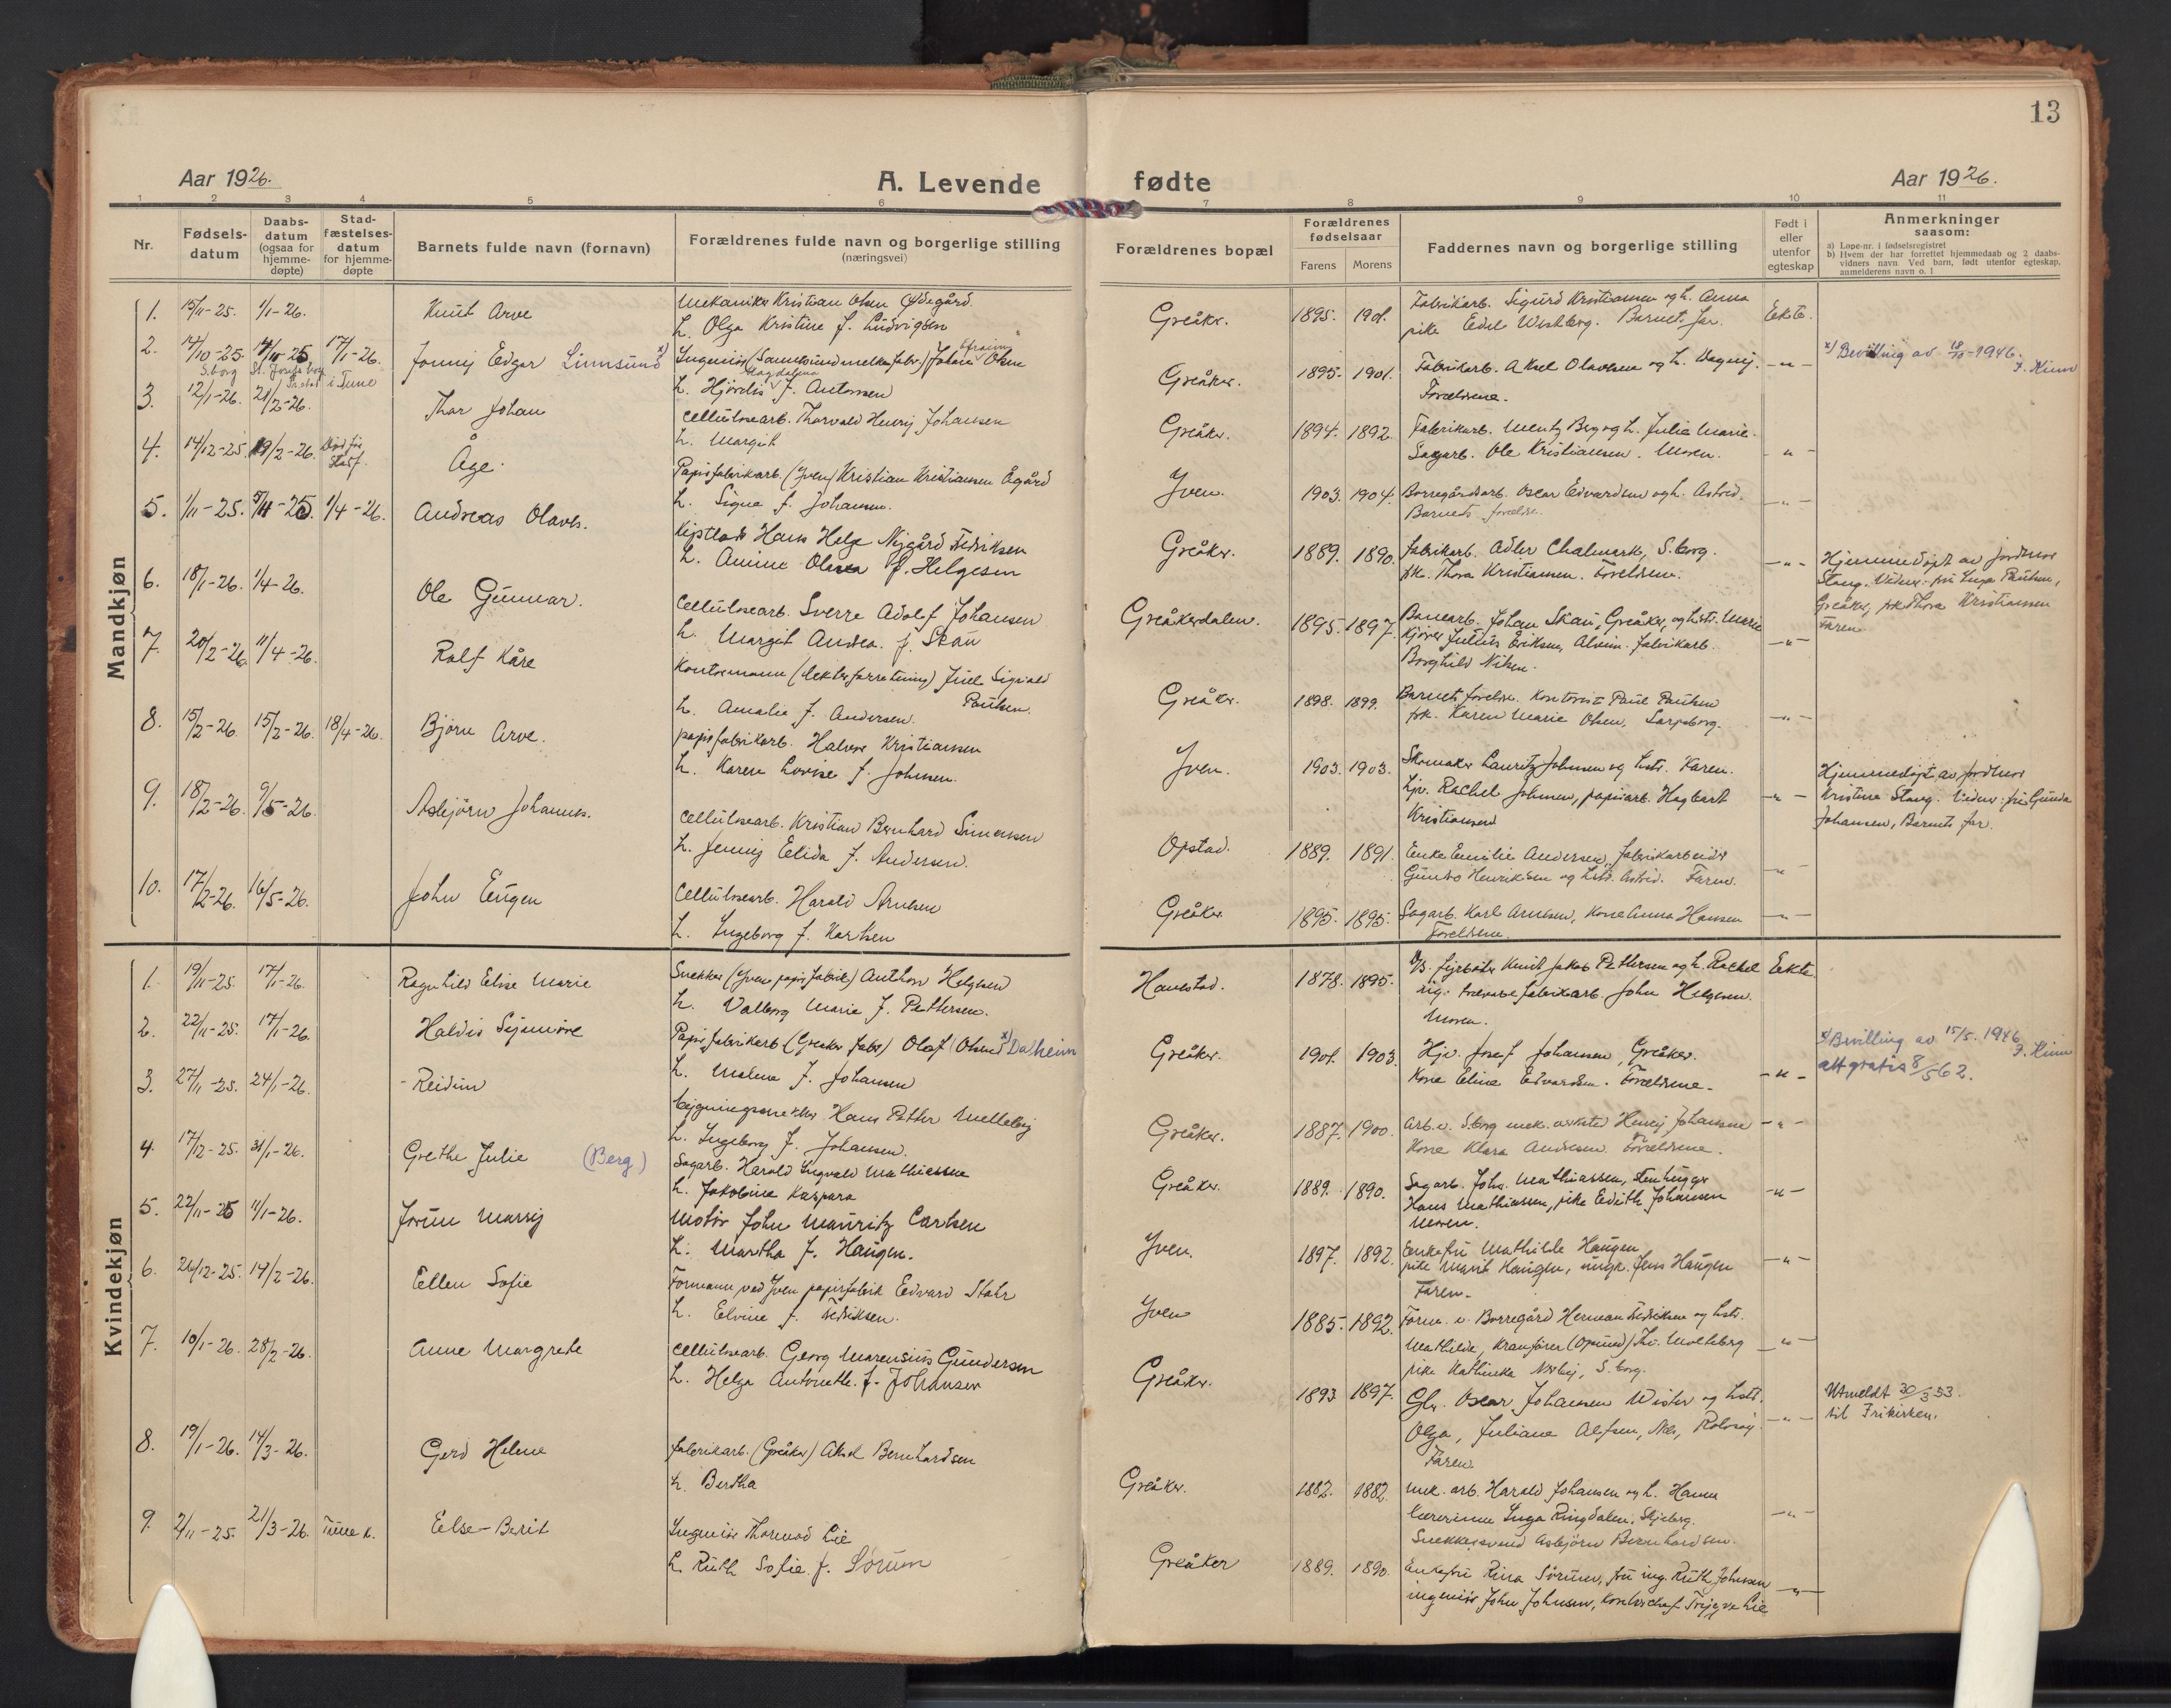 13
Aar 1926.
A. Levende fødte
Aar 1926.
1 2 3 4 5 6 7 8 9 10 11
Nr.
Fødsels-
datum
Daabs-
datum
(ogsaa for
hjemme-
døpte)
Stad-
fæstelses-
datum
for hjemme-
døpte
Barnets fulde navn (fornavn)
Forældrenes fulde navn og borgerlige stilling
(næringsvei)
Forældrenes bopæl
Forældrenes
fødselsaar
Farens Morens
Faddernes navn og borgerlige stilling
Født i
eller
utenfor
egteskap
Anmerkninger
saasom:
a) Løpe-nr. i fødselsregistret
b) Hvem der har forrettet hjemmedaab og 2 daabs-
vidners navn. Ved barn, født utenfor egteskap,
anmelderens navn o. l.
Mandkjøn
1. 15/11-25. 1/1-26. Knut Arve
Mekaniker Kristian Olsen Ødegård
h. Olga Kristine f. Ludvigsen
Greåker. 1895. 1901.
Fabrikarb. Sigurd Kristiansen og h. Anna
pike Edel Westberg. Barnets far.
Ekte.
2. 14/10-25. 17/1-26. Jonny Edgar Linnsund x)
S.borg i Tune
Ingeniør Johan Efraim Olsen
h. Hjørdis Magdalena f. Antonsen
Greåker. 1895. 1901.
Fabrikarb. Aksel Olavesen og h. Dagny.
Forældrene.
-"-
x) Bevilling av 18/10-1946.
F. Kinn
3. 12/1-26. 21/2-26. Thor Johan
Cellulosearb. Thorvald Henry Johansen
h. Margit
Greåker. 1894. 1892.
Fabrikarb. Mentz Berg og h. Julie Marie.
Sagarb. Ole Kristiansen. Moren.
-"-
4. 14/12-25. 19/2-26. Død før Stadf. Åge.
Papirfabrikarb. (Yven) Kristian Kristiansen Ågård
h. Signe f. Johansen.
Yven. 1903. 1904.
Borregårdsarb. Oscar Edvardsen og h. Astrid.
Barnets forældre.
-"-
5. 1/11-25. 5/11-25. 1/4-26. Andreas Olavs.
Hans Helge Nygård Fredriksen
h. Amine Olava f. Helgesen
Greåker. 1889. 1890.
fabrikarb. Adler Chalmark, S.borg.
frk. Thora Kristiansen. Foreldrene.
-"-
Hjemmedøpt av jordmor
Stang. Vidner: fru Inga Paulsen,
Greåker, frk Thora Kristiansen
Faren
6. 18/1-26. 1/4-26. Ole Gunnar.
Cellulosearb. Sverre Adolf Johansen
h. Margit Andrea. f. Skau
Greåkerdalen. 1895. 1897.
Banearb. Johan Skau, Greåker, og hstr. Marie
Kjører Julius Eriksen, Alvim. fabrikarb.
Borghild Nilsen.
-"-
7. 20/2-26 11/4-26. Rolf Kåre
Kontormann Juel Sigvald
Paulsen.
h. Amalie f. Andersen.
Greåker. 1898. 1899.
Barnets foreldre. Kontorist Paul Paulsen
frk. Karen Marie Olsen, Sarpsborg.
-"-
8. 15/2-26. 15/2-26. 18/4-26. Bjørn Arve.
papirfabrikarb. Halvor Kristiansen
h. Karen Lovise f. Johnsen.
Yven. 1903. 1903.
Skomaker Lauritz Johnsen og hstr. Karen.
hjv. Rachel Johnsen, papirarb. Hagbart
Kristiansen
-"-
Hjemmedøpt av jordmor
Kristine Stang. Vidner: fru Gunda
Johansen, Barnets far.
9. 18/2-26. 9/5-26. Asbjørn Johannes.
Cellulosearb. Kristian Bernhard Simensen
h. Jenny Elida f. Andersen.
Opstad. 1889. 1891.
Enke Emilie Andersen, fabrikarbeider
Henriksen og hstr. Astrid. Faren.
-"-
10. 17/2-26. 16/5-26. John Eugen
Cellulosearb. Harald Arnesen
h. Ingeborg f. Karlsen
Greåker 1895. 1895.
Sagarb. Karl Arnesen, Kone Anna Hansen
Foreldrene.
-"-
Kvindekjøn
1. 19/11-25. 17/1-26. Ragnhild Elise Marie
Snekker (Yven papirfabrik) Anthon Helgesen
h. Valborg Marie f. Pettersen.
Hannestad. 1878. 1895.
Fyrbøter Knut Jakob Pettersen og h. Rachel
fabrikarb. John Helgesen.
Moren.
Ekte
2. 22/11-25. 17/1-26. Haldis Synnøve
Papirfabrikarb (Greåker fabr) Olaf Olsen x) Dalheim
h. Malene f. Johansen
Greåker. 1901. 1903.
Hjv. Josef Johansen, Greåker.
Kone Eline Edvardsen. Forældrene.
-"-
x) Bevilling av 15/5. 1946
F. Kinn
att gratis 8/5 62.
3. 27/11-25. 24/1-26. Reidun
Bygningssnekker Hans Petter Melleby
h. Ingeborg f. Johansen.
Greåker. 1887. 1900.
Arb. v. S.borg mek. verksted Henry Johansen
Kone Klara Andresen. Forældrene.
-"-
4. 17/12-25. 31/1-26. Grethe Julie (Berg)
Sagarb. Harald Ingvald Mathiassen
h. Jakobine Kaspara
Greåker. 1889. 1890.
Sagarb. Johs. Mathiassen, Stenhugger
Hans Mathiassen, pike Edith Johansen
Moren.
-"-
5. 22/11-25 11/1-26. Jorun Marry
Motør John Mauritz Carlsen
h. Martha f. Haugen.
Yven. 1897. 1892.
Enkefru Mathilde Haugen
pike Marit Haugen, ungk. Jens Haugen
Faren.
-"-
6. 26/12-25. 14/2-26. Ellen Sofie
Formann ved Yven papirfabrik Edvard Stahr
h. Elvine f. Fredriksen.
Yven 1885. 1892.
Form. v. Borregård Herman Fredriksen og hstr.
Mathilde, Kranfører (Opsund) Th. Molteberg
pike Kathinka Nørby, S.borg.
-"-
7. 10/1-26. 28/2-26. Anne Margrete
Cellulosearb. Georg Marensius Gundersen
h. Helga Antonette. f. Johansen
Greåker. 1893 1897.
Oscar Johansen Wister og hstr.
Olga, Juliane Alfsen, Rolvsøy.
Faren.
-"-
Utmeldt 30/3 53.
til Frikirken.
8. 19/1-26. 14/3-26. Gerd Helene
fabrikarb. (Greåker) Aksel Bernhardsen
h. Bertha
Greåker. 1882. 1882.
Mek. arb. Harald Johansen og h. Hanna
lærerinne Inga Ringdalen, Skjeberg.
Snekkersvend Asbjørn Bernhardsen.
-"-
9. 2/11-25. 21/3-26. Tune k. Else-Berit
Ingeniør Thormod Lie
h. Ruth Sofie f. Sørum
Greåker 1889. 1890.
Enkefru Rina Sørum, fru ing. Ruth Johnsen
ingeniør John Johnsen, Kontorchef Trygve Lie
-"-